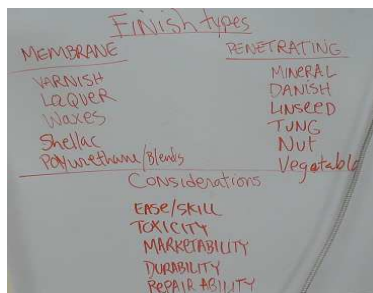 Finish types
MEMBRANE
VARNISH
LAQUER
Waxes
Shellac
Polyurethane/Blends
PENETRATING
MINERAL
DANISH
LINSEED
TUNG
Nut
Vegetable
Considerations
EASE/SKILL
TOXICITY
MARKETABILITY
DURABILITY
REPAIR ABILITY